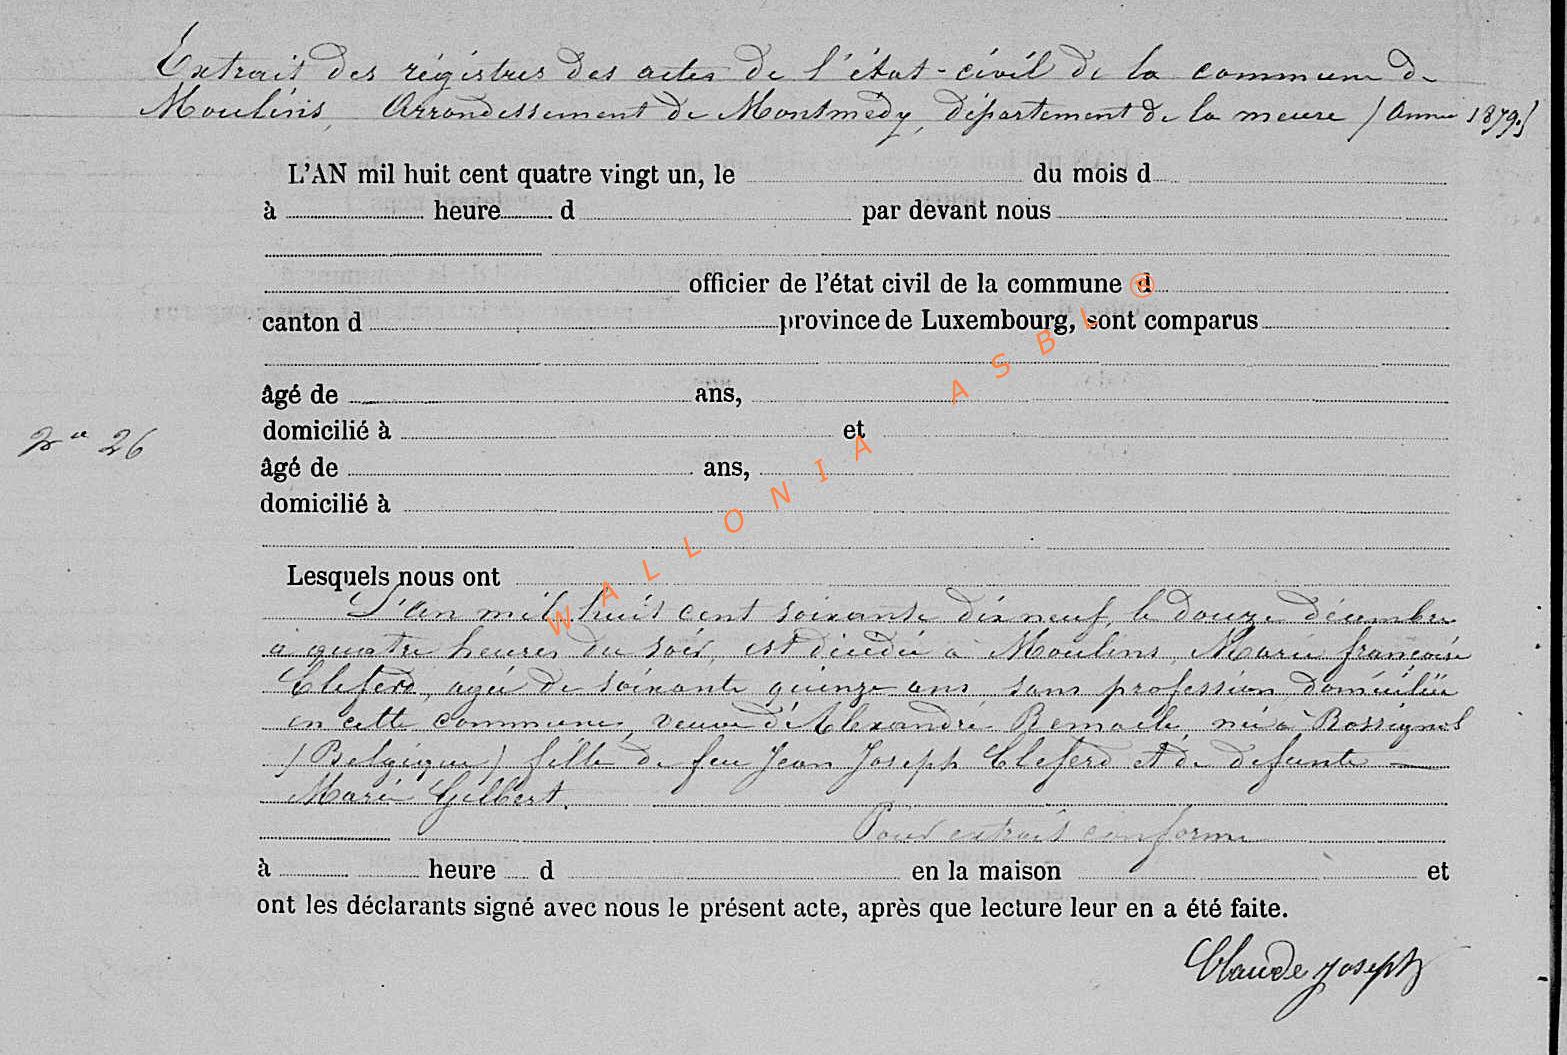 Extrait des régistres des actes de l'état-civil de la commune de
Moulins, Arrondissement de Montmédy, département de la meuse / Année 1879./
L'AN mil huit cent quatre vingt un, le du mois d
à heure d par devant nous
officier de l'état civil de la commune d
canton d province de Luxembourg, sont comparus
âgé de ans,
domicilié à et
Nº 26
âgé de ans,
domicilié à
Lesquels nous ont
L'an mil huit cent soixante dix neuf, le douze décembre
à quatre heures du soir, est décédée à Moulins, Marie françoise
Cleferd, agée de soixante quinze ans sans profession domiciliée
en cette commune, veuve d'Alexandre Remacle, née à Rossignol
/ Belgique / fille de feu Jean Joseph Cleferd et de defunte —
Marie Gilbert.
Pour extrait conforme
à heure d en la maison et
ont les déclarants signé avec nous le présent acte, après que lecture leur en a été faite.
Claude Joseph
WALLONIA ASBL ®